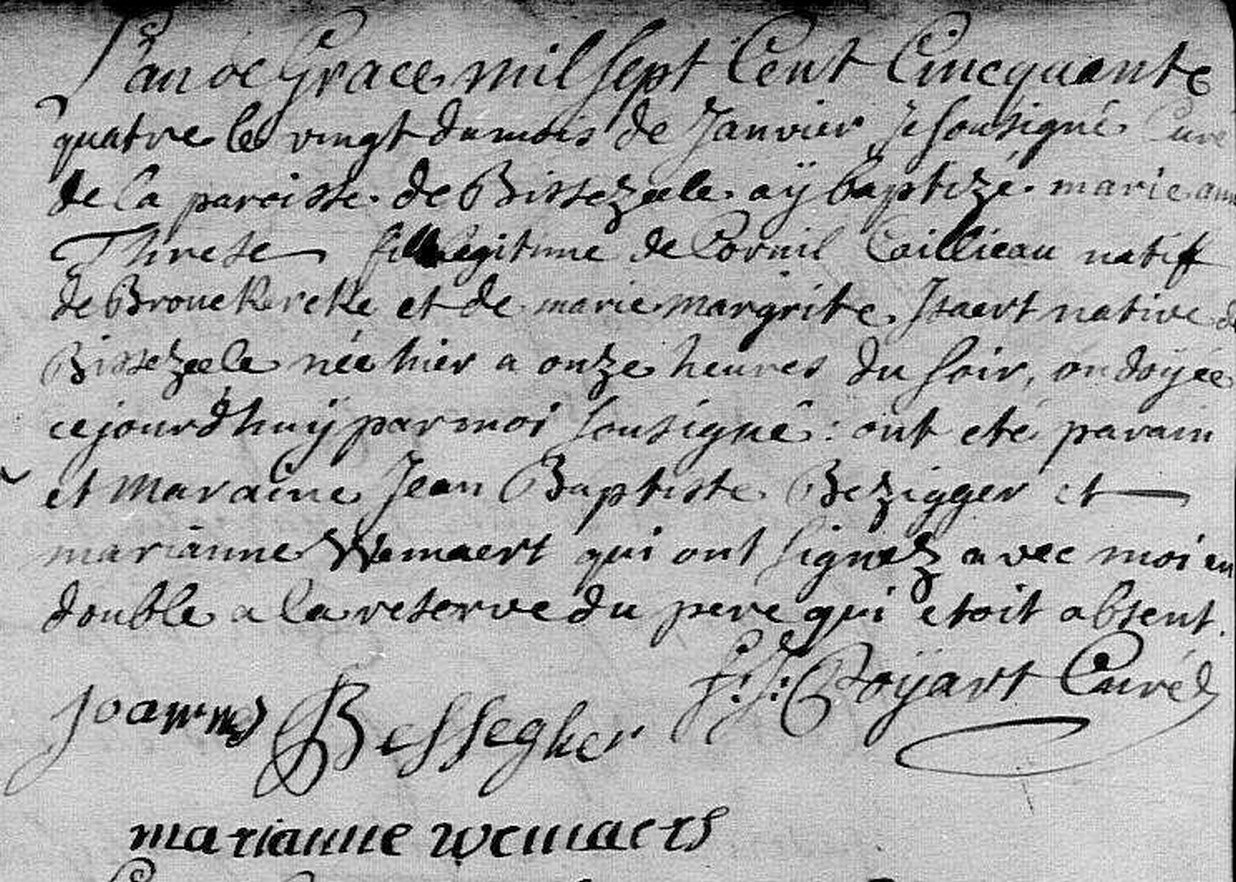 L'an de Grace mil sept Cent Cincquante
quatre le vingt du mois de Janvier Je sousigné Curé
de la paroisse de Bissezeele aÿ baptizé marie anne
Threse fille legitime de Cornil Caillieau natif
de Brouckercke et de marie margrite Isaert native de
Bissezeele née hier a onze heures du soir, ondoyée
cejourd'huÿ par moi sousigné: ont eté parain
et maraine Jean Baptiste Bezigger et
marianne Wemaert qui ont signez avec moi en
double a la reserve du pere qui etoit absent.
f: J: Royart Curé
joannes Bessegher
marianne wemaers